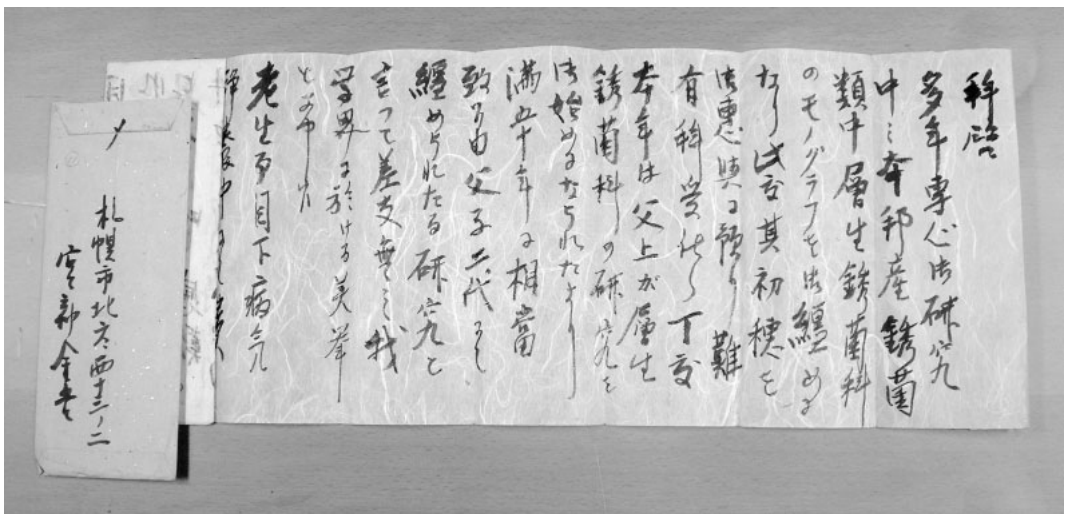 拝啓
多年専心御研究
中ニ本邦産銹菌
類中層生銹菌科
のモノグラフを御纏め
なり此度其初穂を
御恵與に預り難
有拝受仕候 丁度
本年は父上が層生
銹菌科の研究を
御始めになられたより
満五十年に相當
致し候由父子二代にて
纏められたる研究と
言つて差支無く我
学界に於ける美挙
と存申候
老生事目下病気
〆
札幌市北六西十三ノ二
宮部金吾